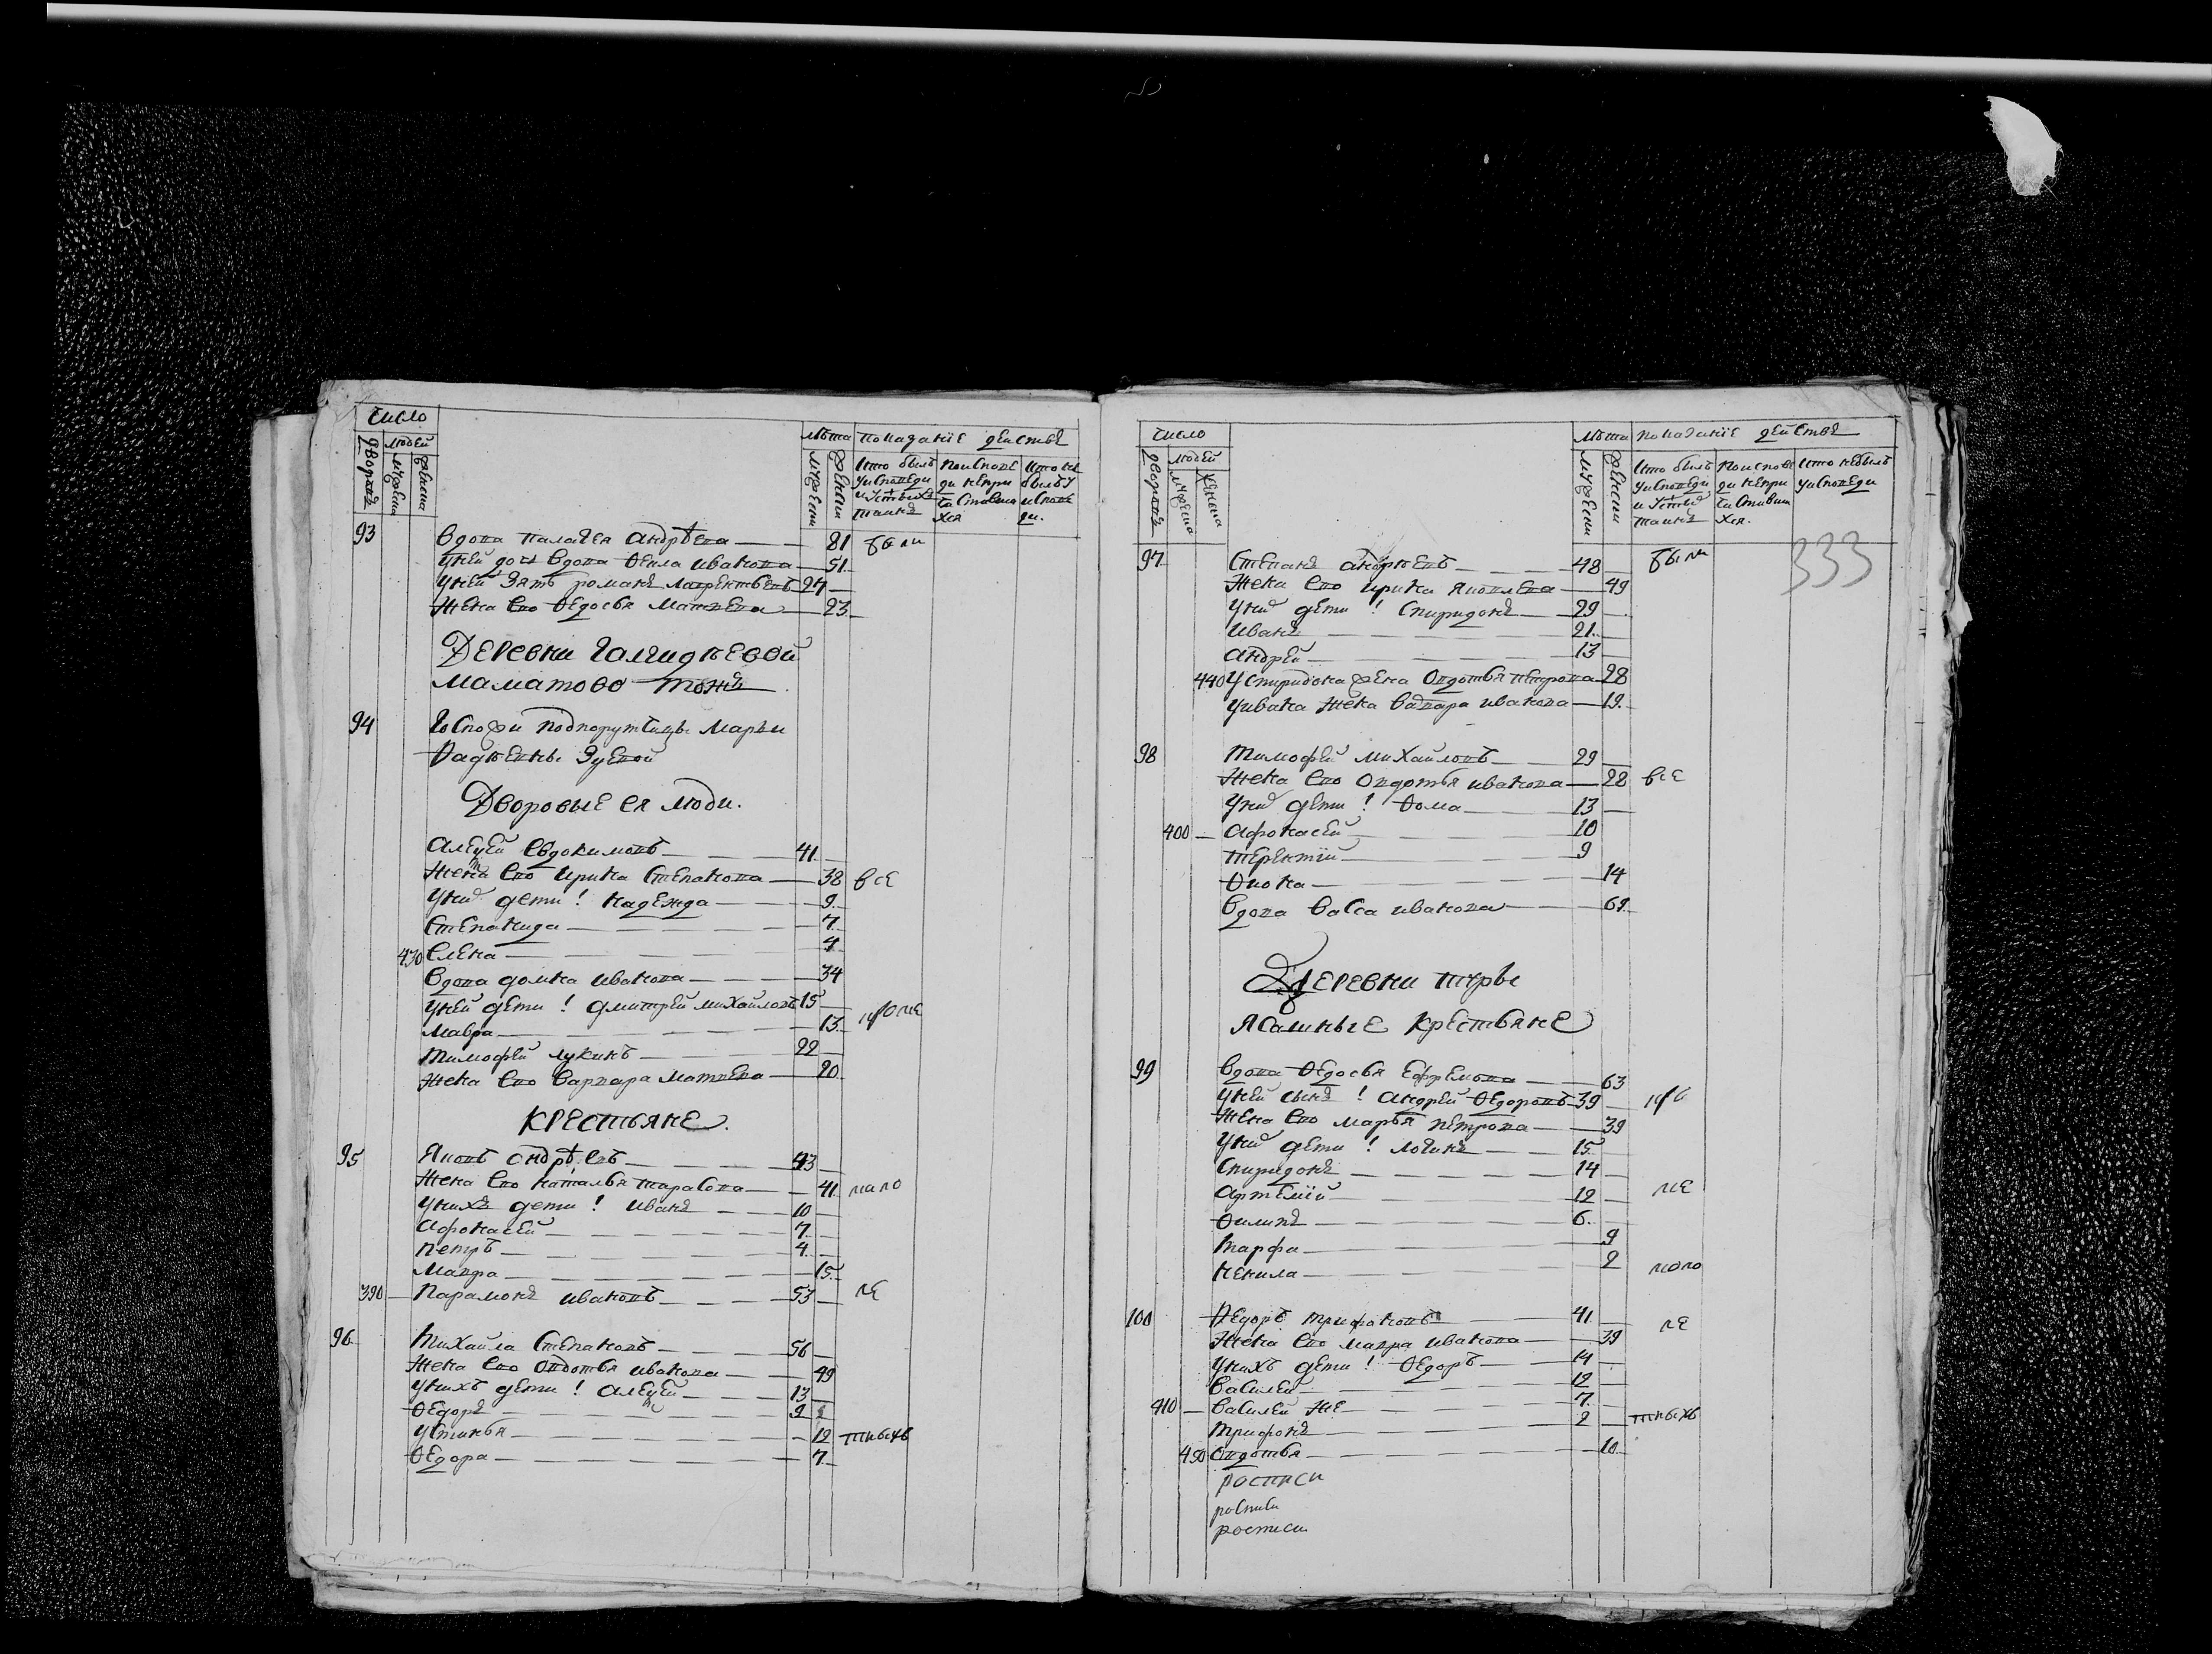 Число
дворовъ
людей
мужеска
женска
лѣта
мужески
женски
показанїе действъ
кто былъ у исповеди и у с[вя]тыхъ таинъ
по исповеди не причастившихся
кто не былъ у исповеди.
93 вдова палагея андрѣева 81 были
у ней дочь вдова Ѳекла иванова 51
у ней зять романъ лаврентьевъ 27
Жена его Ѳедосья Матвеева 23
Деревни
Маматово тожъ
94 Госпожи подпорутчицы Марьи
Ѳадѣевны Зуевой
Дворовые ея люди.
Алеѯей Евдокимовъ 41
Жена его ирина Степанова 38 все
У нихъ дети! надежда 9
Степанида 7
430 Елена 4
вдова домна иванова 34
У ней дети! дмитрей михайловъ 15
Мавра 13 кроме
Тимофей лукинъ 22
Жена его варвара Матвеева 20
Крестьяне.
95 Яковъ андрѣевъ 43
Жена его наталья тарасова 41 мало
У нихъ дети! иванъ 10
Афонасей 7
петръ 4
Мавра 15
390 Парамонъ ивановъ 53 ле
96 Михайла Степановъ 56
Жена его овдотья иванова 49
У нихъ дети! алеѯей 13
Ѳедоръ 9
Устинья 12 тныхъ
Ѳедора 7
Число
дворовъ
людей
мужеска
женска
лѣта
мужески
женски
показанїе действъ
кто былъ у исповеди и у с[вя]тыхъ таинъ
по исповеди не причастившихся.
кто не былъ у исповеди
333
97 Степанъ андрѣевъ 48 были
Жена его ирина яковлева 49
У нихъ дети! Спиридонъ 29
иванъ 21
андрей 13
440 У спиридона жена овдотья петрова 28
У ивана жена варвара иванова 19
98 Тимофей михайловъ 29
Жена его овдотья иванова 28 все
У нихъ дети! Ѳома 13
400 Афонасей 10
терентїй 9
Ѳиона 14
вдова васса иванова 69
Деревни туры
Ясашные крестьяне
99 вдова Ѳедосья ефремова 63
У ней сынъ! андрей Ѳедоровъ 39 кро
Жена его марья петрова 39
У нихъ дети! логинъ 15
Спиридонъ 14
артемїй 12 ме
Ѳилипъ 6
Марфа 9
ненила 2 мало
100 Ѳедоръ трифоновъ 41 ле
Жена его мавра иванова 39
У нихъ дети! Ѳедоръ 14
василей 12
410 василей же 7
Трифонъ 2 тныхъ
450 овдотья 10
росписи
росписи
росписи